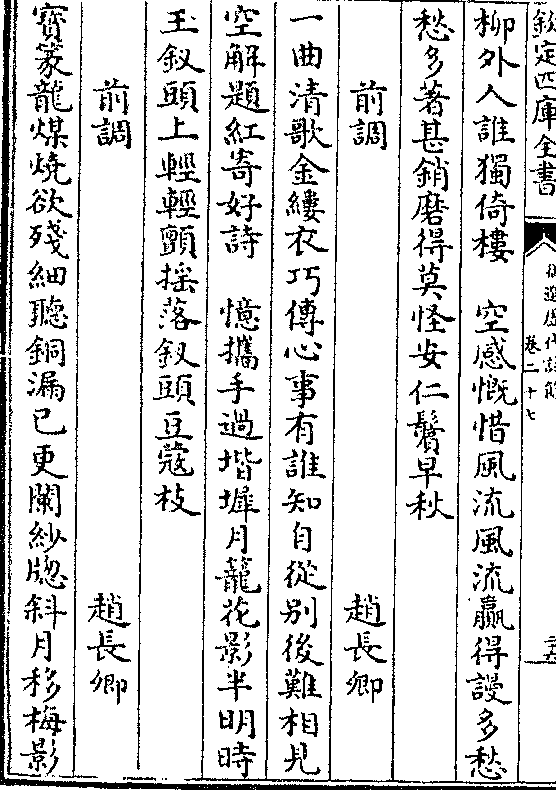 欽定四庫全書
御選歴代詩餘
卷二十七
柳外人誰獨倚樓　空感慨惜風流風流贏得謾多愁
愁多著甚銷磨得莫怪安仁鬢早秋
前調　趙長卿
一曲清歌金縷衣巧傳心事有誰知自從别後難相見
空解題紅寄好詩　憶攜手過堦墀月籠花影半明時
玉釵頭上輕輕顫揺落釵頭豆蔻枝
前調　趙長卿
寳篆龍煤燒欲殘細聽銅漏已更闌紗牕斜月移梅影